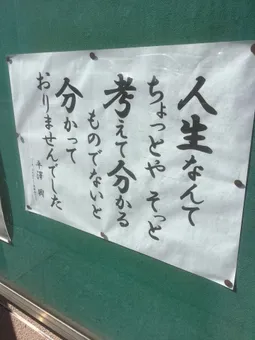 人生なんて
ちょっとや そっと
考えて分かる
ものでないと
分かって
おりませんでした